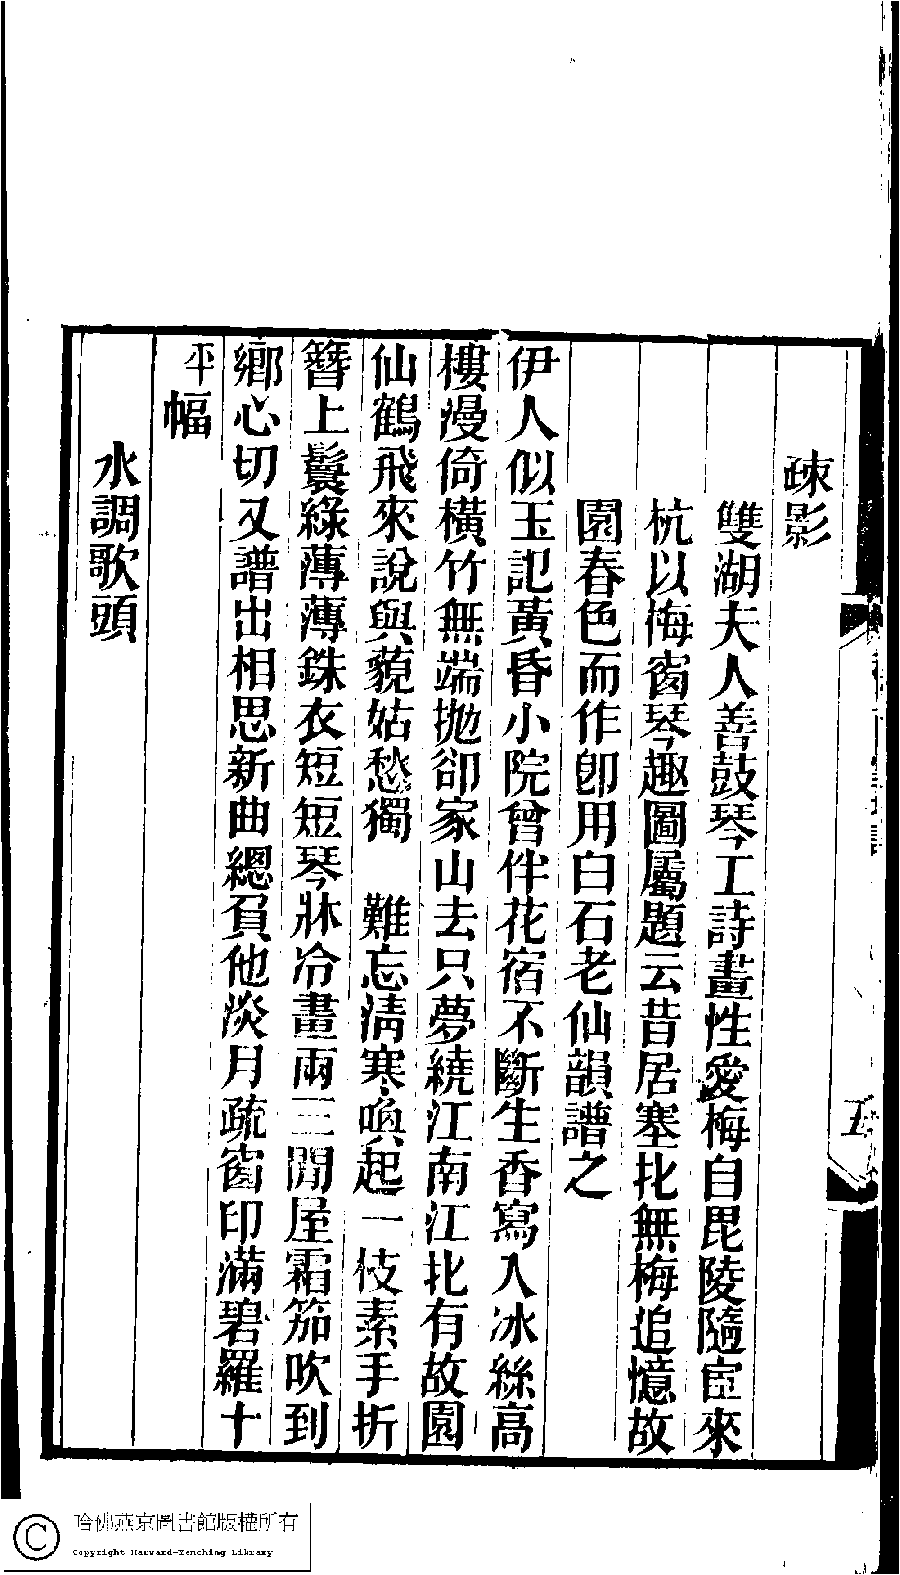 疎影
雙湖夫人善鼓琴工詩畫性愛梅自毘陵隨宦來
杭以梅窗琴趣圖屬題云昔居塞北無梅追憶故
園春色而作卽用白石老仙韻譜之
伊人似玉記黃昏小院曾伴花宿不斷生香寫入冰絲高
樓漫倚橫竹無端拋卻家山去只夢繞江南江北有故園
仙鶴飛來說與藐姑愁獨　難忘淸寒喚起一枝素手折
簪上鬟綠薄薄銖衣短短琴牀冷畫兩三閒屋霜笳吹到
鄉心切又譜出相思新曲總負他淡月疏窗印滿碧羅十
平
幅
水調歌頭
五
哈佛燕京圖書館版權所有
Copyright Harvard-Yenching Library